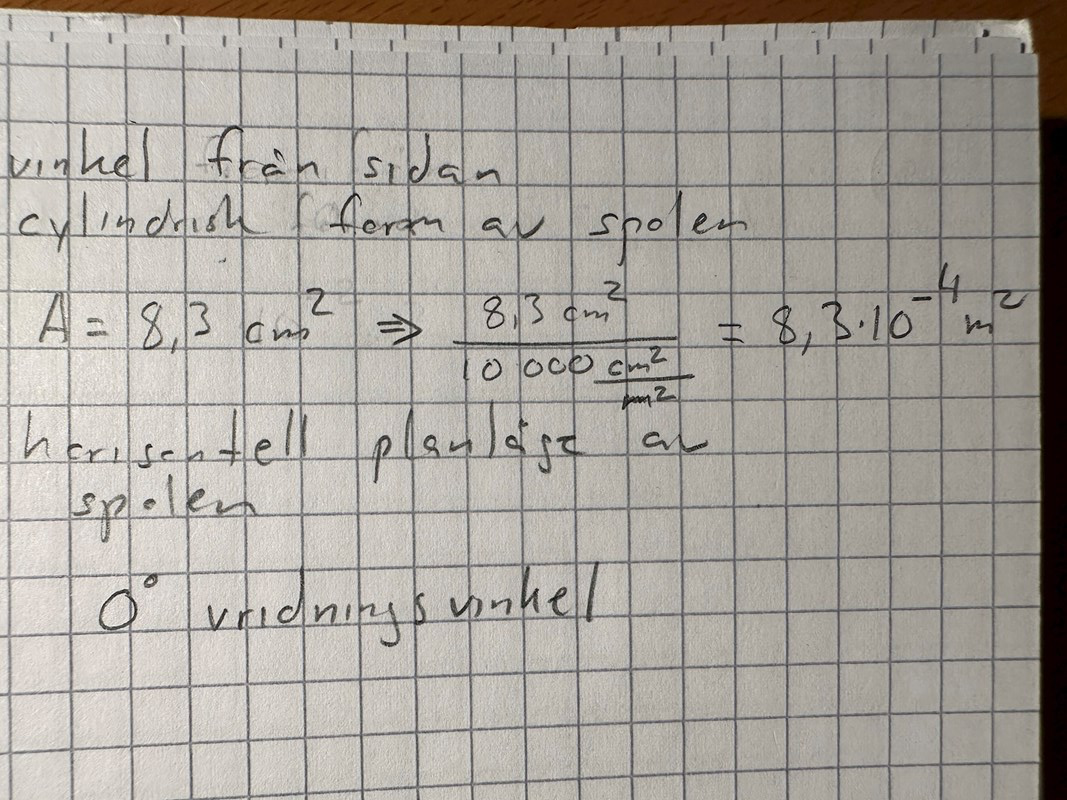 vinkel från sidan
cylindrisk form av spolen
A = 8,3 cm² ⇒ 8,3 cm² / 10 000 cm²/m² = 8,3·10⁻⁴ m²
horisontell planläge av
spolen
0° vridningsvinkel